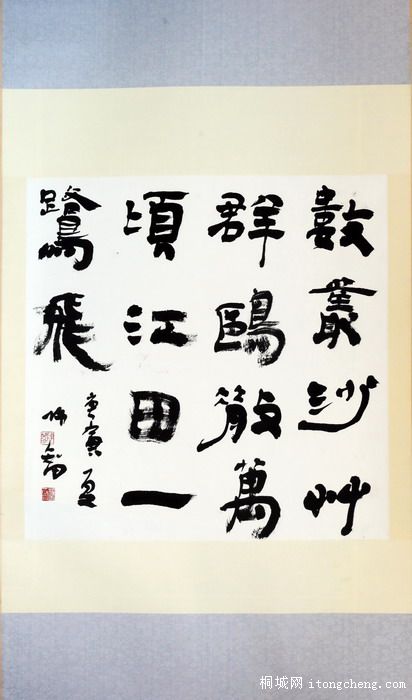 數叢沙艸
群鷗散萬
頃江田一
鷺飛
庚寅夏
桐城网 itongcheng.com